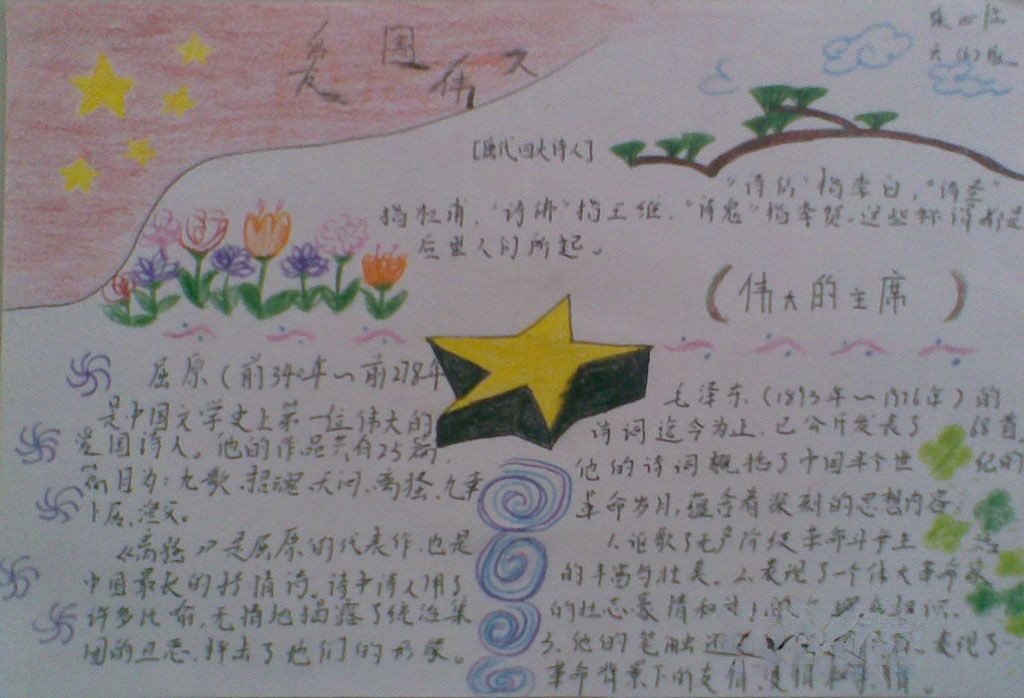 爱国伟人
[唐代四大诗人]
"诗仙"指李白，"诗圣"
指杜甫，"诗佛"指王维，"诗鬼"指李贺。这些称谓都是
后世人们所起。
(伟大的主席)
屈原(前340年~前278年
是中国文学史上第一位伟大的
爱国诗人。他的作品共有25篇，
篇目为：九歌、招魂、天问、离骚、九章
卜居、渔父。
《离骚》是屈原的代表作，也是
中国最长的抒情诗。诗中诗人用了
许多比喻，无情地揭露了统治集
团的丑恶，抨击了他们的形象。
毛泽东(1893年~1976年)的
诗词迄今为止，已公开发表了68首，
他的诗词概括了中国半个世纪的
革命岁月，蕴含着深刻的思想内容：
1、讴歌了无产阶级革命斗争
的丰富与壮美。2、表现了一个伟大革命家
的壮志豪情和
3、他的笔触还 表现了
革命背景下的友情、爱情和亲情。